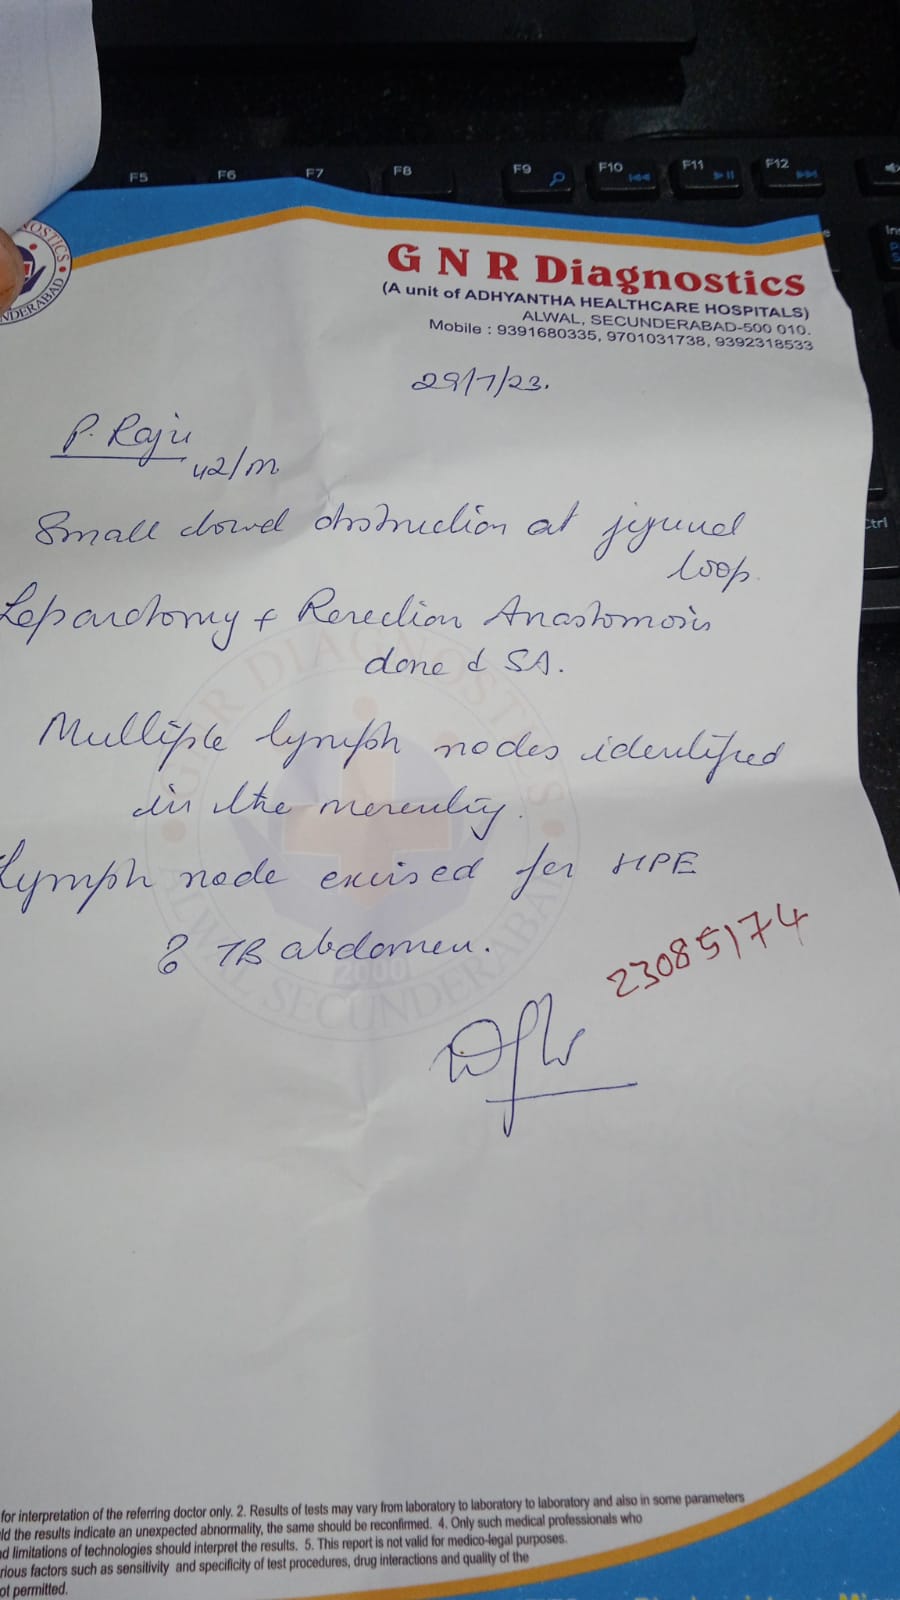 F5 F6 F7 F8 F9 F10 F11 F12
Ins
Ctrl
NOSTICS
NDERABAD
G N R Diagnostics
(A unit of ADHYANTHA HEALTHCARE HOSPITALS)
ALWAL, SECUNDERABAD-500 010.
Mobile : 9391680335, 9701031738, 9392318533
29/7/23.
P. Raju
42/m
Small bowel obstruction at jejunal
loop.
Laparotomy & Resection Anastomosis
done SA.
Multiple lymph nodes identified
in the mesentry.
Lymph node excised for HPE
? TB abdomen.
23085174
GNR DIAGNOSTICS
ALWAL SECUNDERABAD
2000
for interpretation of the referring doctor only. 2. Results of tests may vary from laboratory to laboratory to laboratory and also in some parameters
ld the results indicate an unexpected abnormality, the same should be reconfirmed. 4. Only such medical professionals who
nd limitations of technologies should interpret the results. 5. This report is not valid for medico-legal purposes.
rious factors such as sensitivity and specificity of test procedures, drug interactions and quality of the
ot permitted.